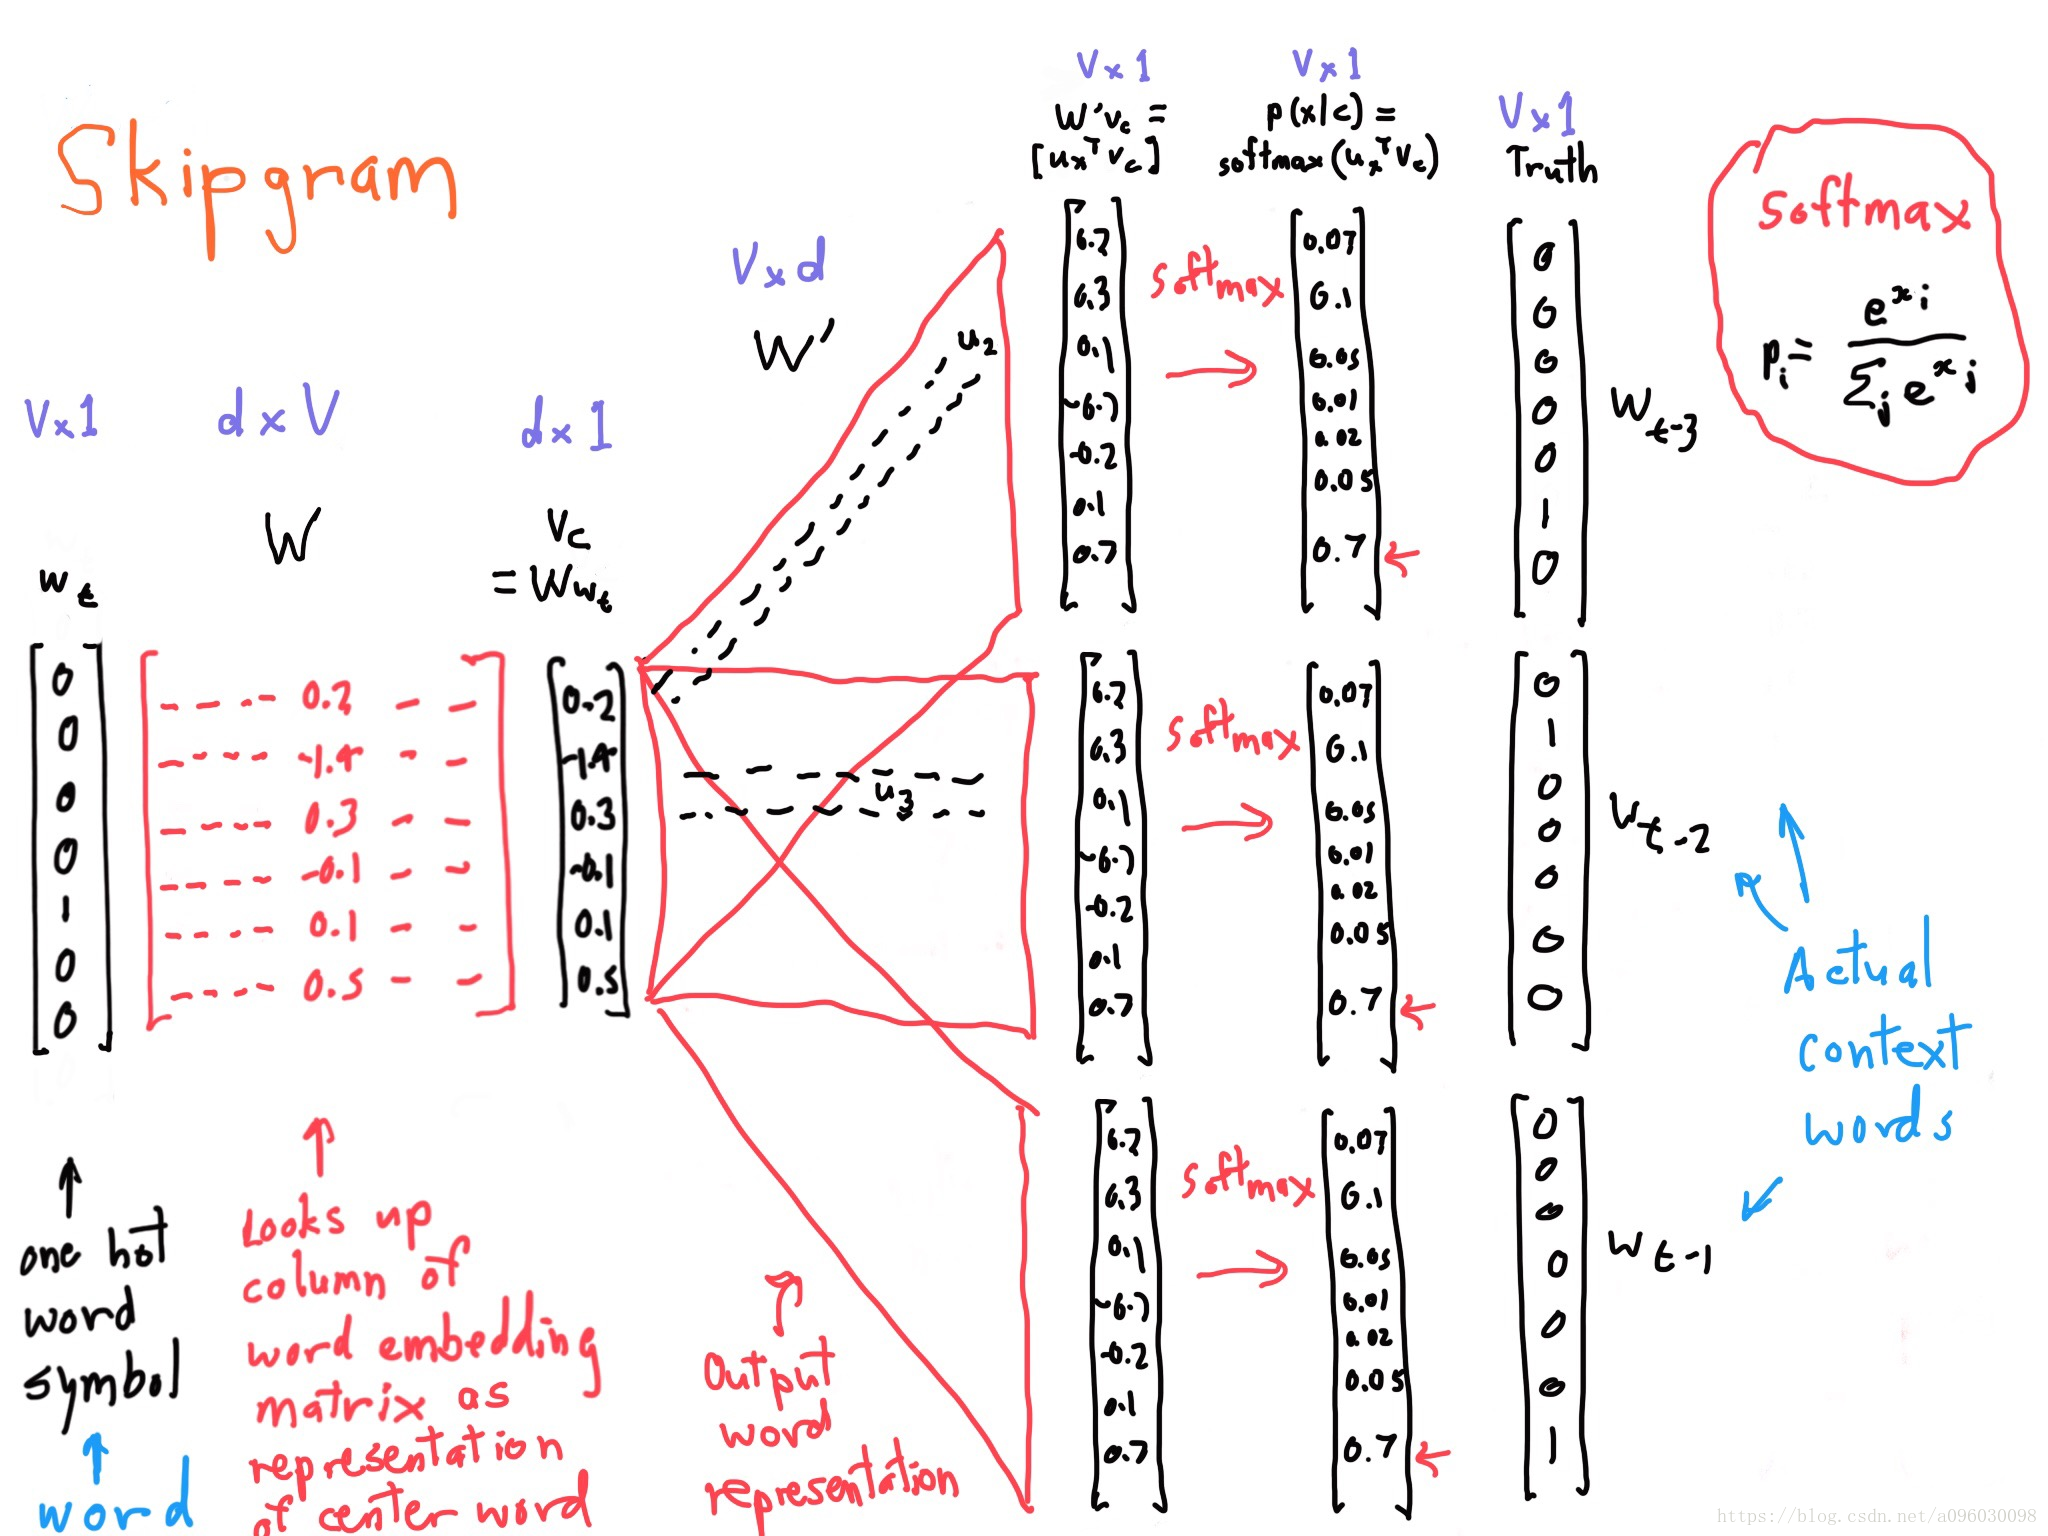 Skipgram
V x 1
w t
0
0
0
0
1
0
0
one hot
word
symbol
word
d x V
W
0.2
-1.4
0.3
-0.1
0.1
0.5
Looks up
column of
word embedding
matrix as
representation
of center word
d x 1
Vc
= Wwt
0.2
-1.4
0.3
-0.1
0.1
0.5
V x d
W'
u2
u3
Output
word
representation
V x 1
W'vc =
[ux^T vc]
0.2
0.3
0.1
-0.7
-0.2
0.1
0.7
softmax
V x 1
p(x|c) =
softmax(ux^T vc)
0.07
0.1
0.05
0.01
0.02
0.05
0.7
V x 1
Truth
0
0
0
0
0
1
0
Wt-3
0.2
0.3
0.1
-0.7
-0.2
0.1
0.7
softmax
0.07
0.1
0.05
0.01
0.02
0.05
0.7
0
1
0
0
0
0
0
Wt-2
0.2
0.3
0.1
-0.7
-0.2
0.1
0.7
softmax
0.07
0.1
0.05
0.01
0.02
0.05
0.7
0
0
0
0
0
0
1
Wt-1
softmax
pi = e^xi / Σj e^xj
Actual
context
words
https://blog.csdn.net/a096030098